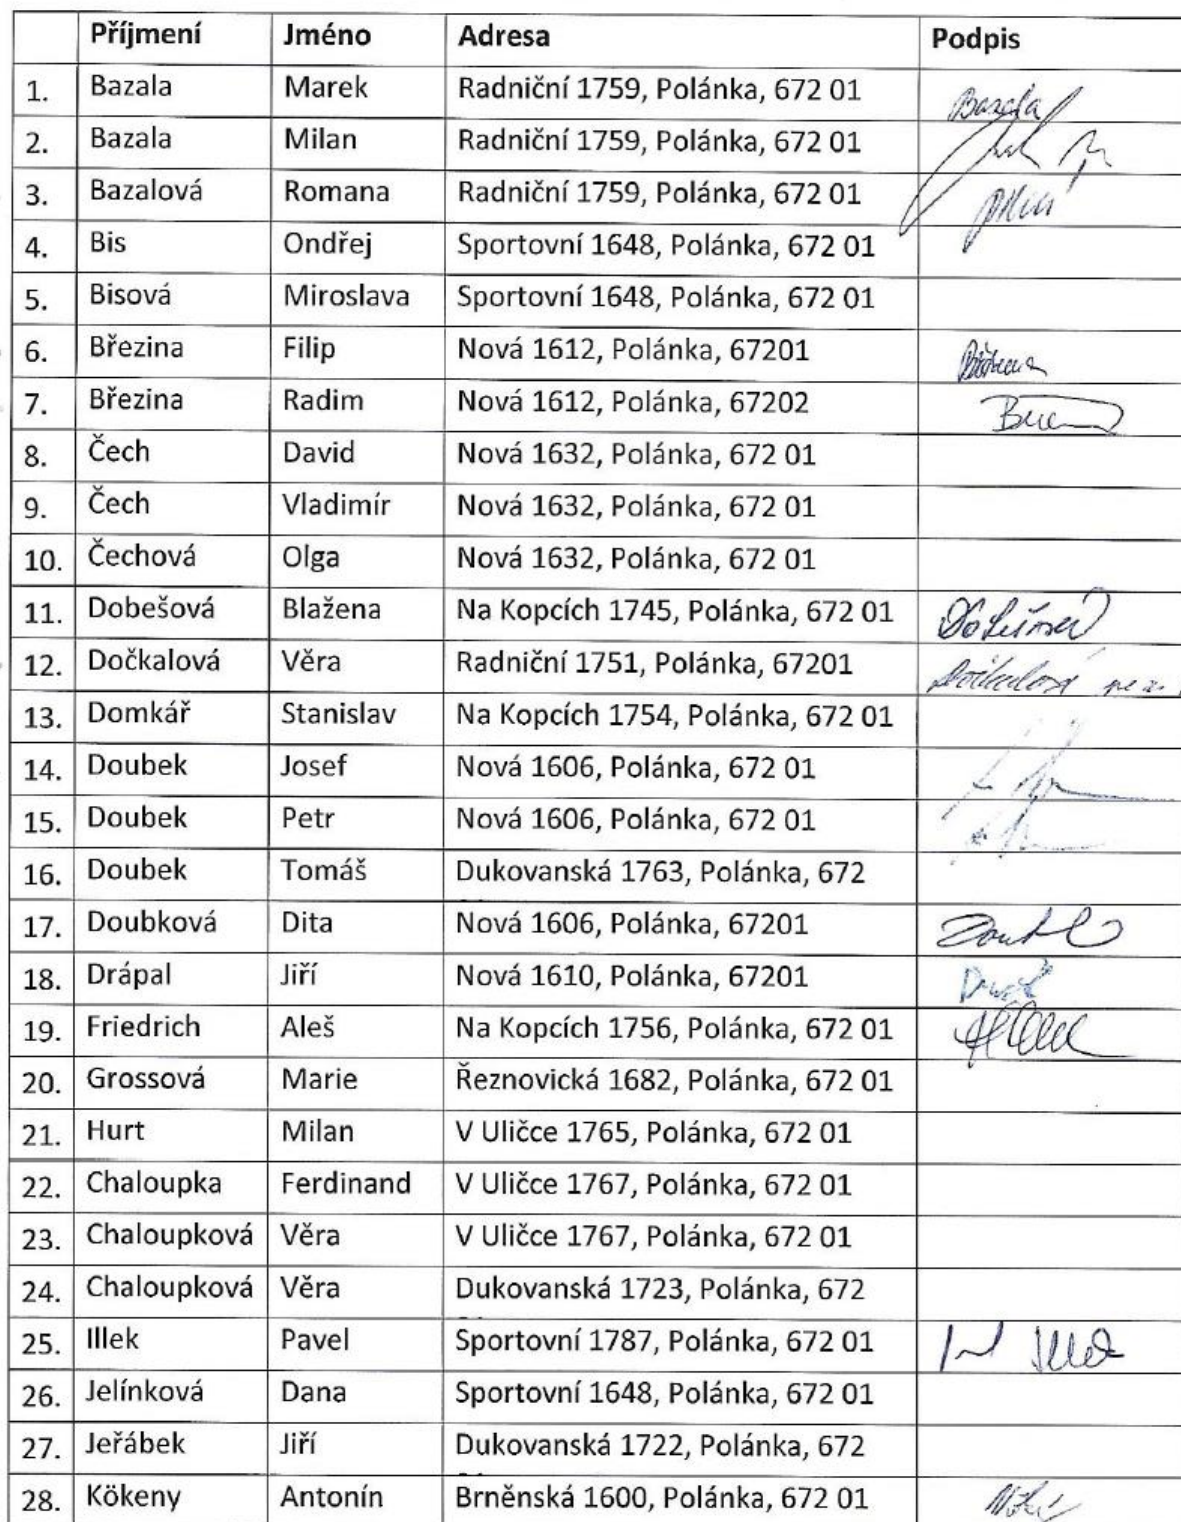 Příjmení Jméno Adresa Podpis
1. Bazala Marek Radniční 1759, Polánka, 672 01 Bazala
2. Bazala Milan Radniční 1759, Polánka, 672 01
3. Bazalová Romana Radniční 1759, Polánka, 672 01
4. Bis Ondřej Sportovní 1648, Polánka, 672 01
5. Bisová Miroslava Sportovní 1648, Polánka, 672 01
6. Březina Filip Nová 1612, Polánka, 67201
7. Březina Radim Nová 1612, Polánka, 67202
8. Čech David Nová 1632, Polánka, 672 01
9. Čech Vladimír Nová 1632, Polánka, 672 01
10. Čechová Olga Nová 1632, Polánka, 672 01
11. Dobešová Blažena Na Kopcích 1745, Polánka, 672 01
12. Dočkalová Věra Radniční 1751, Polánka, 67201 Dočkalová
13. Domkář Stanislav Na Kopcích 1754, Polánka, 672 01
14. Doubek Josef Nová 1606, Polánka, 672 01
15. Doubek Petr Nová 1606, Polánka, 672 01
16. Doubek Tomáš Dukovanská 1763, Polánka, 672
17. Doubková Dita Nová 1606, Polánka, 67201
18. Drápal Jiří Nová 1610, Polánka, 67201
19. Friedrich Aleš Na Kopcích 1756, Polánka, 672 01
20. Grossová Marie Řeznovická 1682, Polánka, 672 01
21. Hurt Milan V Uličce 1765, Polánka, 672 01
22. Chaloupka Ferdinand V Uličce 1767, Polánka, 672 01
23. Chaloupková Věra V Uličce 1767, Polánka, 672 01
24. Chaloupková Věra Dukovanská 1723, Polánka, 672
25. Illek Pavel Sportovní 1787, Polánka, 672 01
26. Jelínková Dana Sportovní 1648, Polánka, 672 01
27. Jeřábek Jiří Dukovanská 1722, Polánka, 672
28. Kökeny Antonín Brněnská 1600, Polánka, 672 01